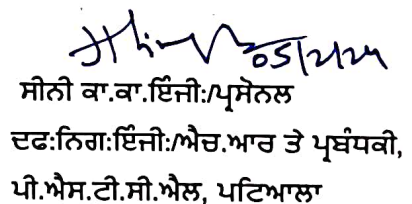 05/2/24
ਸੀਨੀ ਕਾ.ਕਾ.ਇੰਜੀ:/ਪ੍ਰਸੋਨਲ
ਦਫ:ਨਿਗ:ਇੰਜੀ:/ਐਚ.ਆਰ ਤੇ ਪ੍ਰਬੰਧਕੀ,
ਪੀ.ਐਸ.ਟੀ.ਸੀ.ਐਲ, ਪਟਿਆਲਾ